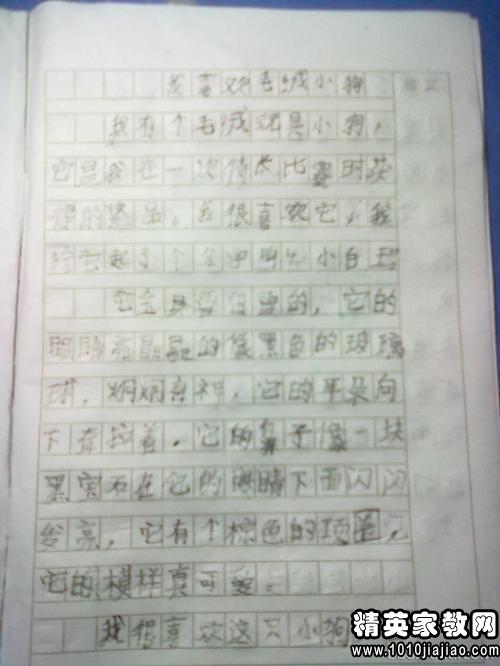 我喜欢毛绒小狗
我有个毛绒玩具小狗，
它是我在一次特长比赛时获
得的奖品，我很喜欢它，我
给它起了个名字叫
它全身雪白雪白的，它的
眼睛亮晶晶的像黑色的玻璃
球，炯炯有神，它的耳朵向
下耷拉着，它的鼻子像一块
黑宝石在它的眼睛下面闪闪
发亮，它有个棕色的项圈，
它的模样真可爱。
我很喜欢这只小狗
精英家教网
www.1010jiajiao.com